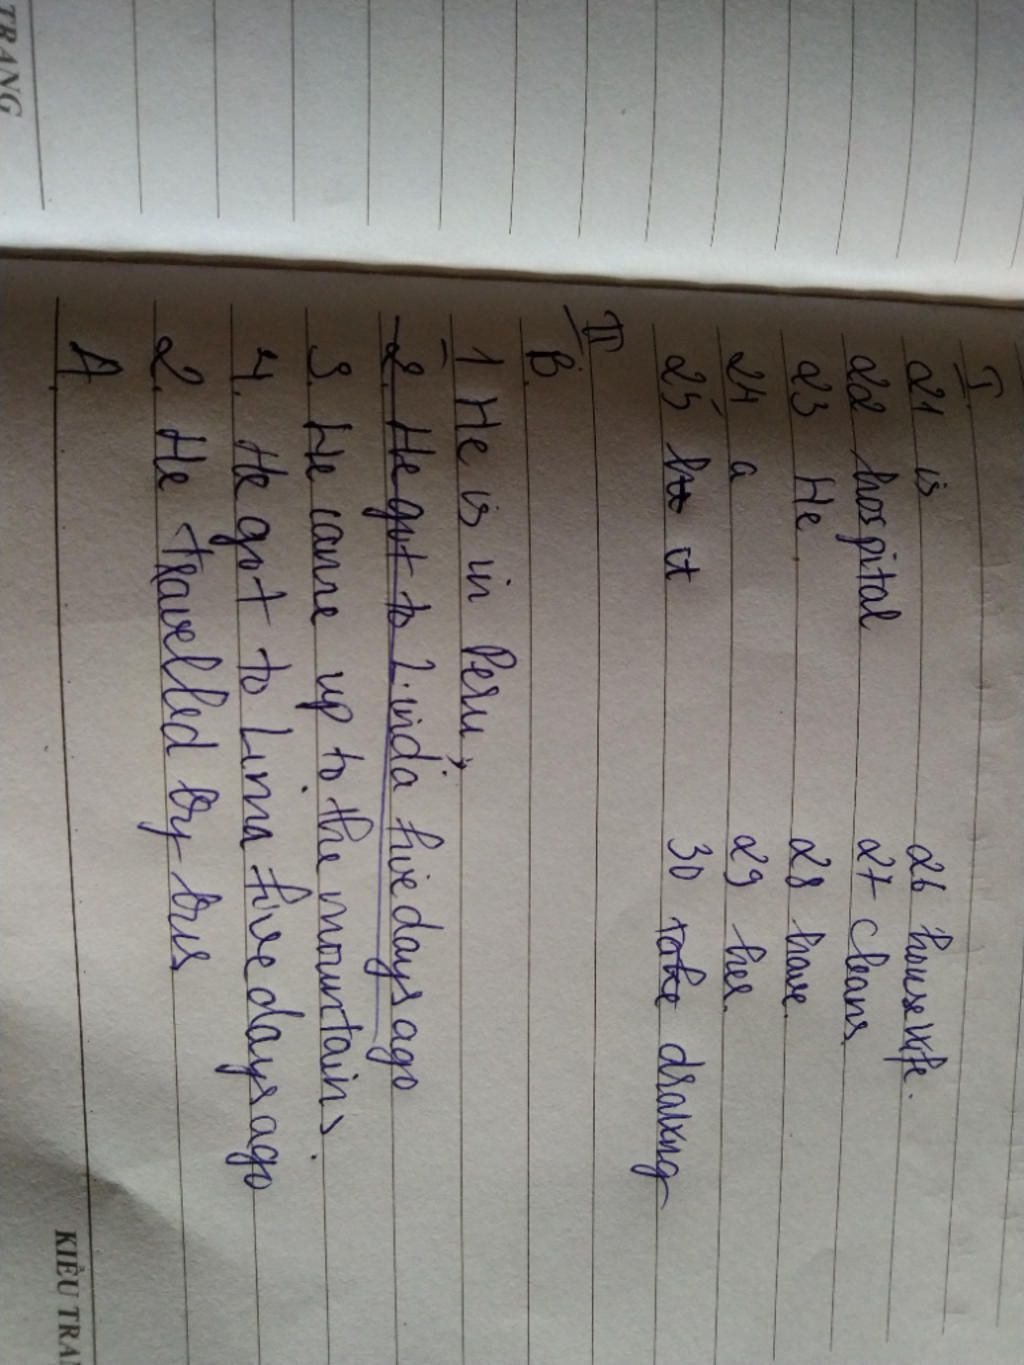 TRANG
I.
21 is 26 housewife.
22 hospital 27 cleans
23 He. 28 have.
24 a 29 her.
25 it 30 drawing
II
B.
1 He is in Peru,
2. He got to Linda five days ago
3. He came up to the mountains.
4. He got to Lima five days ago
2. He travelled by bus
A
KIỀU TRAN